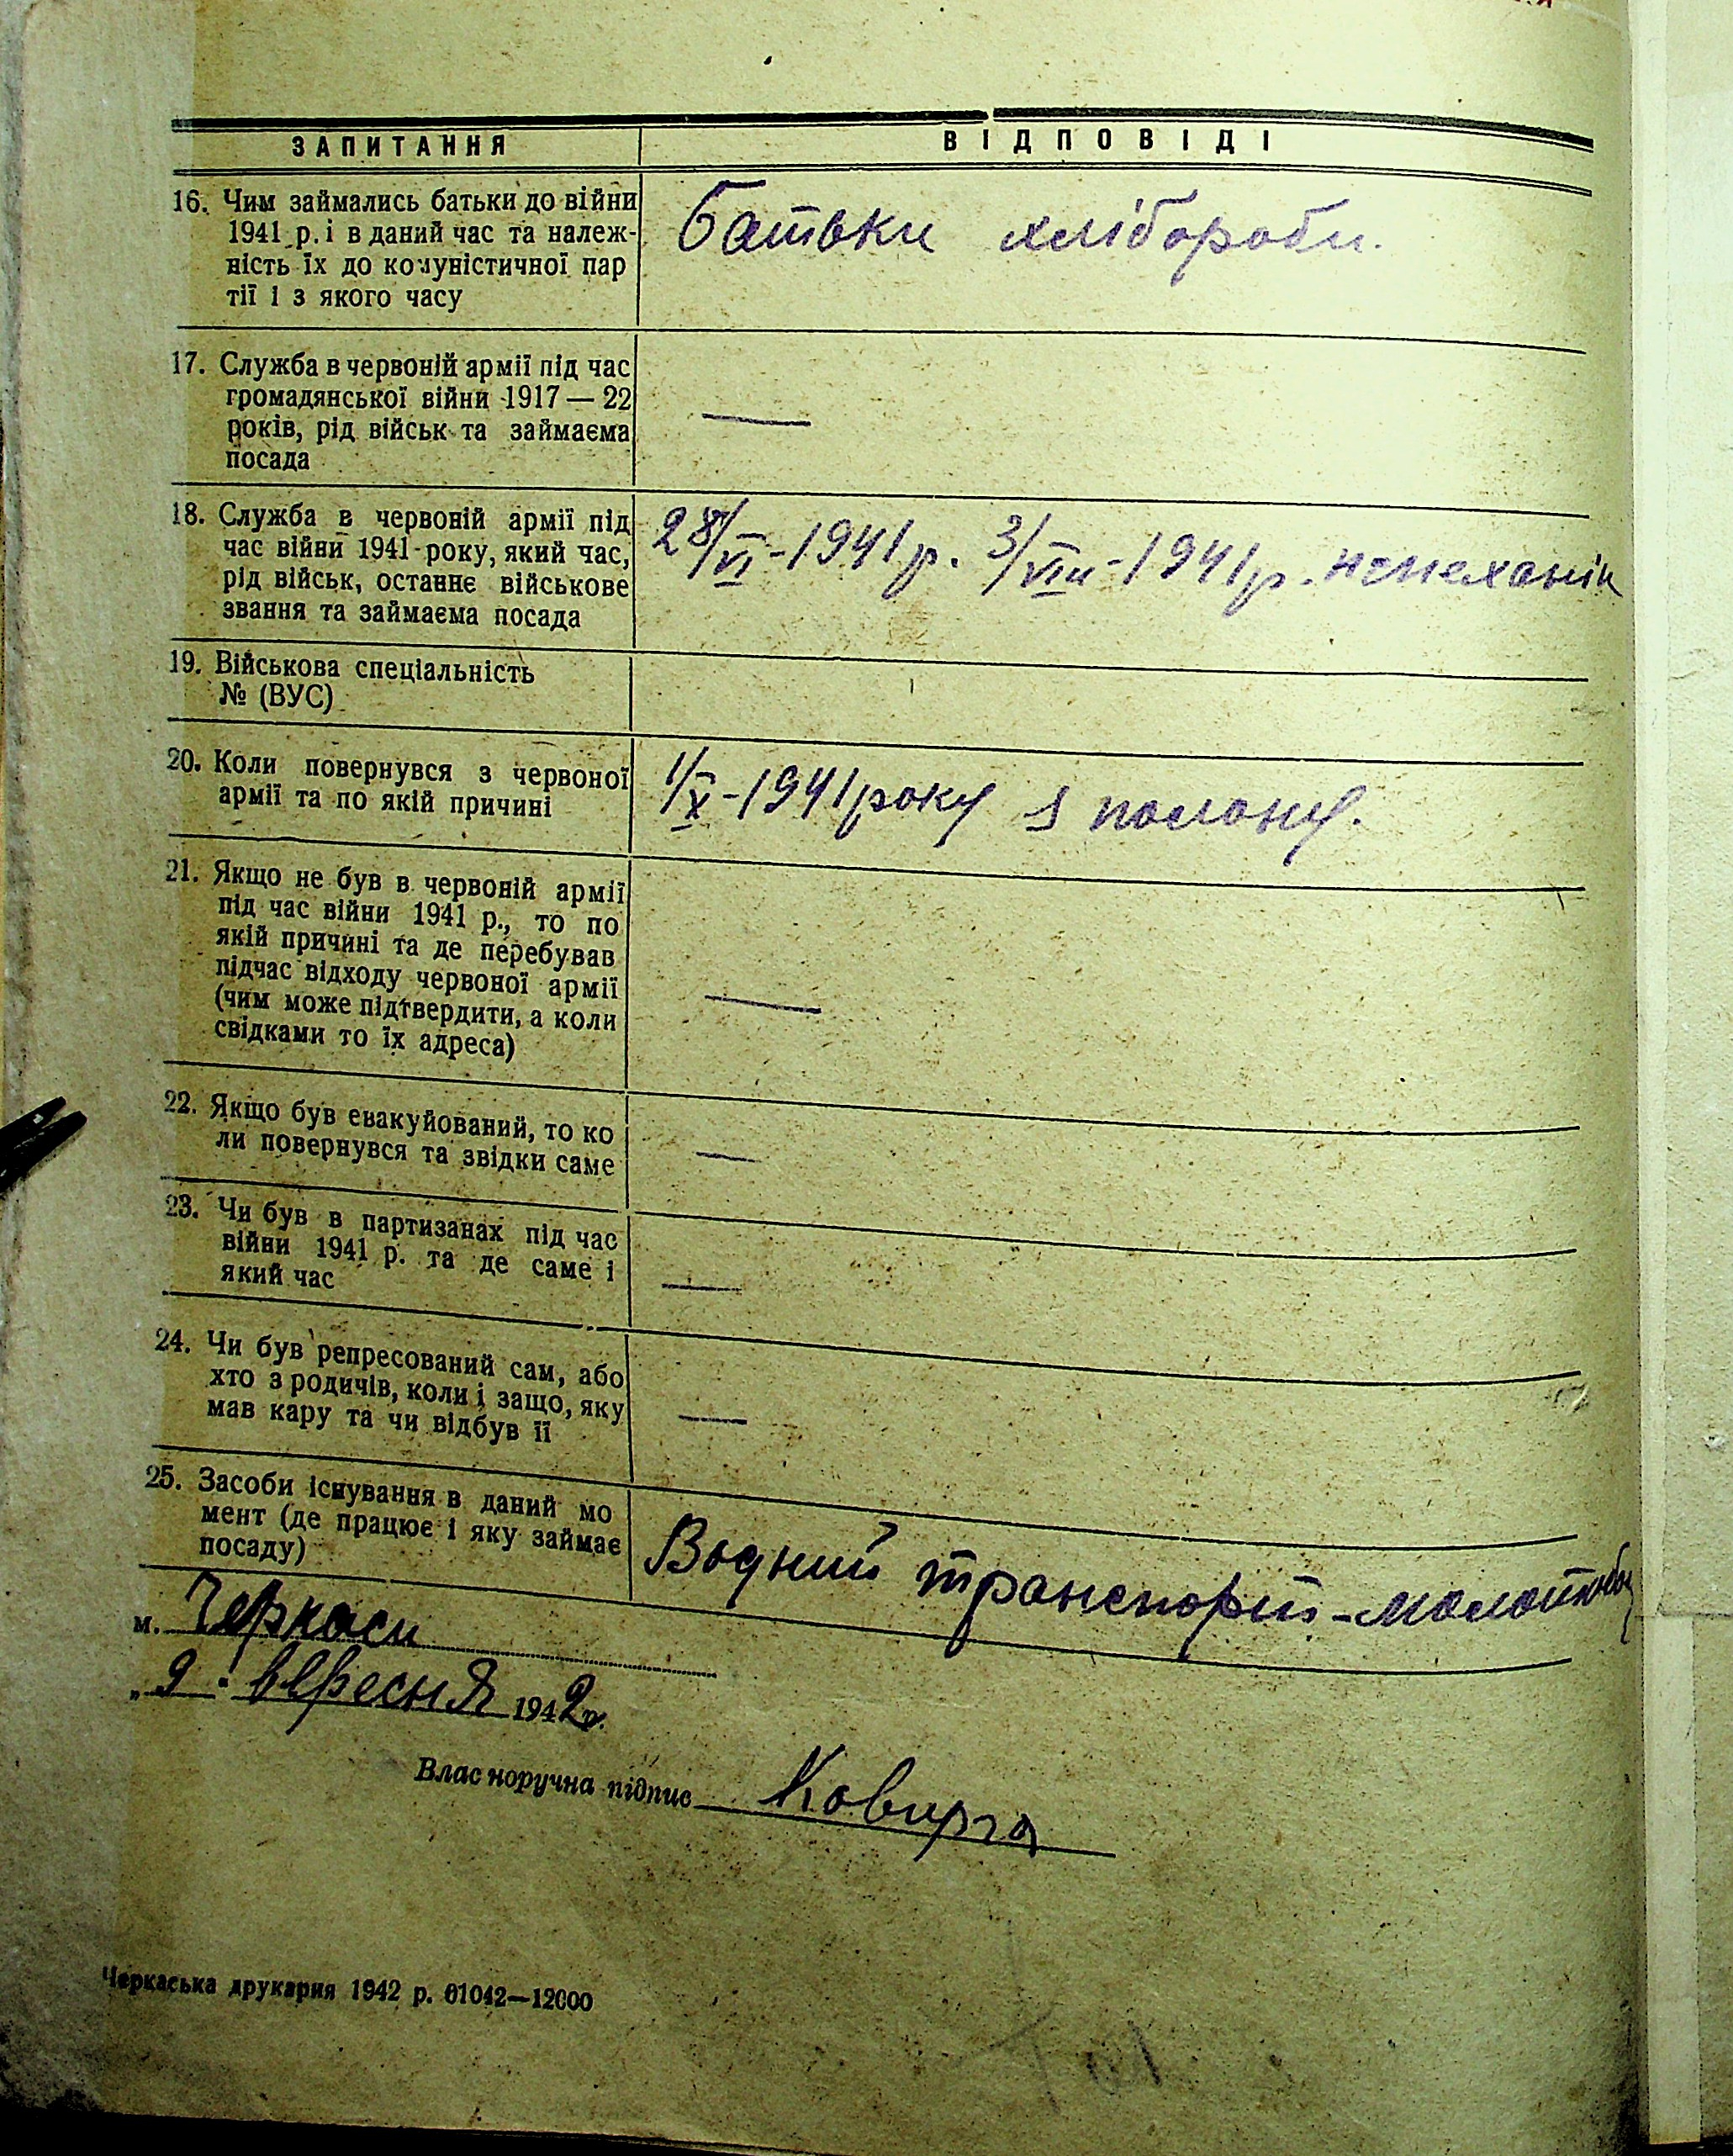 ЗАПИТАННЯ ВІДПОВІДІ
16. Чим займались батьки до війни
1941 р. і в даний час та належ-
ність їх до комуністичної пар
тії і з якого часу
Батьки хлібороби.
17. Служба в червоній армії під час
громадянської війни 1917 — 22
років, рід військ та займаєма
посада
—
18. Служба в червоній армії під
час війни 1941 року, який час,
рід військ, останнє військове
звання та займаєма посада
28/VI-1941 р. 3/VIII-1941 р.
19. Військова спеціальність
№ (ВУС)
20. Коли повернувся з червоної
армії та по якій причині
1/X-1941 року з полону.
21. Якщо не був в червоній армії
під час війни 1941 р., то по
якій причині та де перебував
підчас відходу червоної армії
(чим може підтвердити, а коли
свідками то їх адреса)
—
22. Якщо був евакуйований, то ко
ли повернувся та звідки саме
—
23. Чи був в партизанах під час
війни 1941 р. та де саме і
який час
—
24. Чи був репресований сам, або
хто з родичів, коли і защо, яку
мав кару та чи відбув її
—
25. Засоби існування в даний мо
мент (де працює і яку займає
посаду)
Водний транспорт-
м. Черкаси
„9" вересня 1942р.
Власноручна підпис Ковирга
Черкаська друкарня 1942 р. 01042—12000